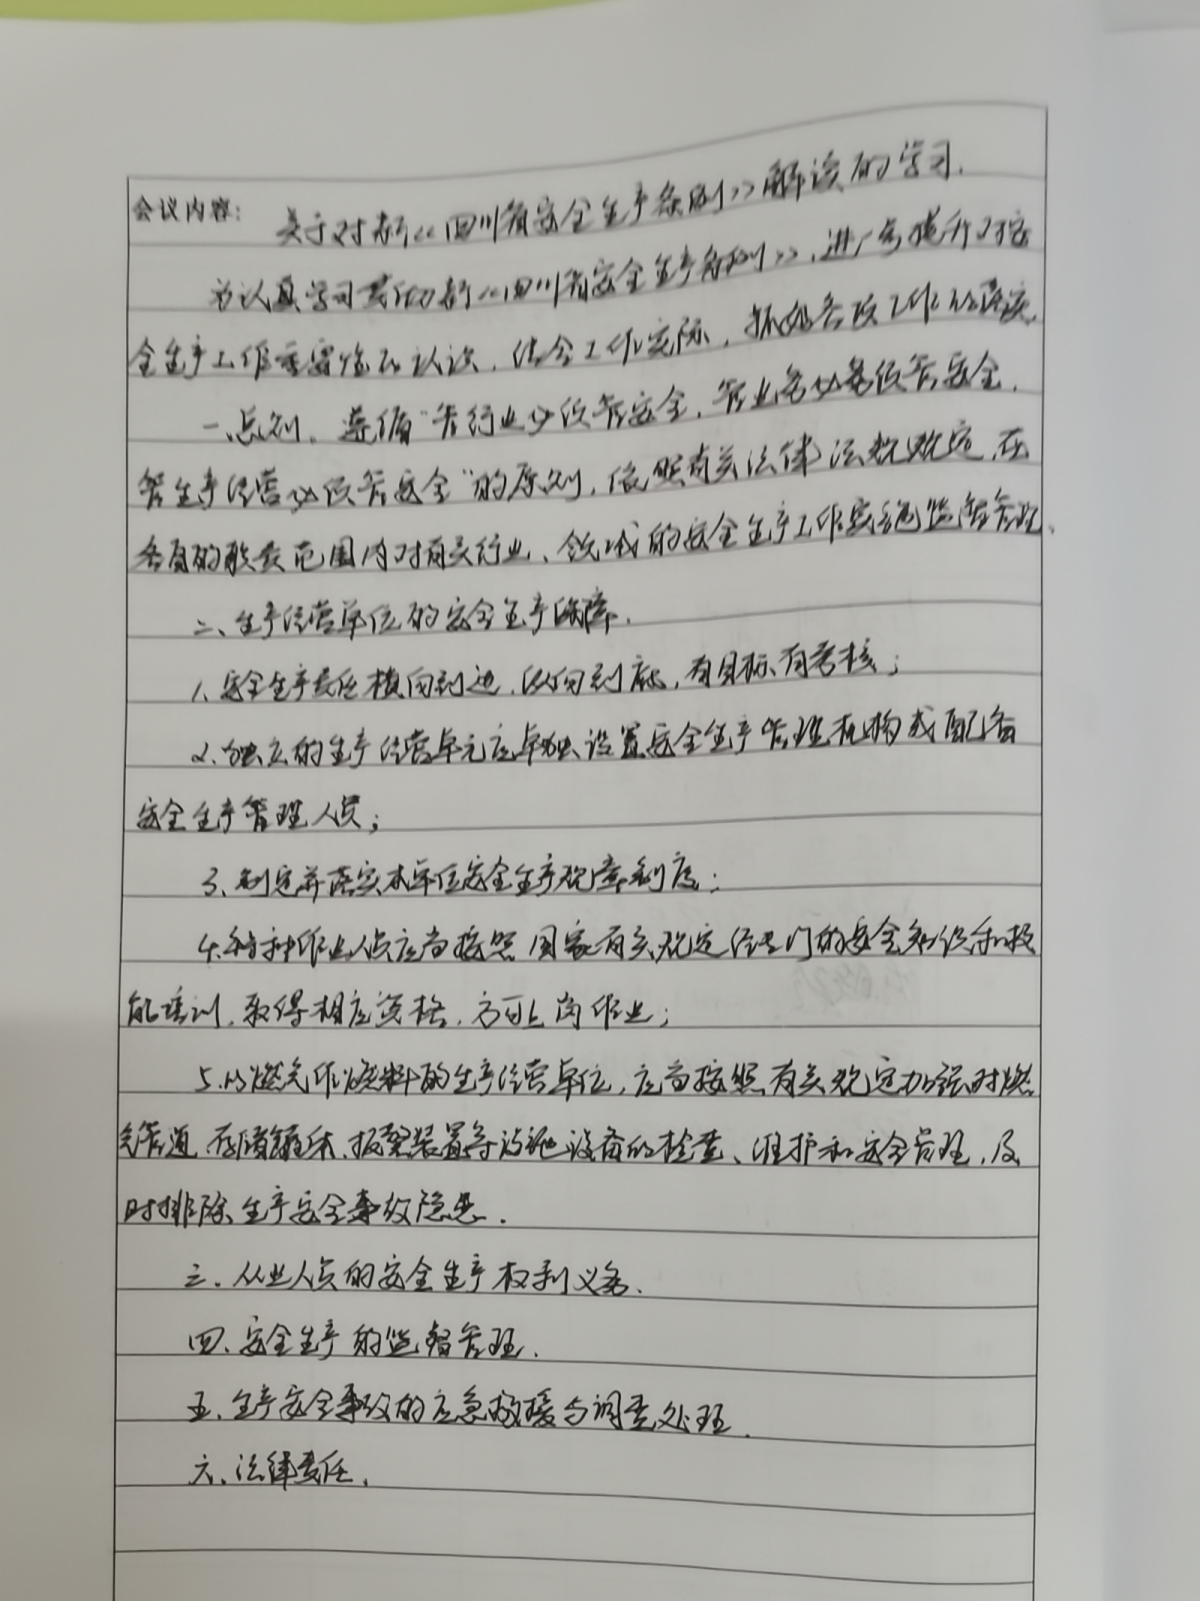 会议内容: 关于对新《四川省安全生产条例》解读的学习.
为认真学习贯彻新《四川省安全生产条例》,进一步提升对安
全生产工作重要性的认识,结合工作实际,抓好各项工作的落实.
一、总则。遵循“管行业必须管安全、管业务必须管安全、
管生产经营必须管安全”的原则,依照有关法律法规规定,在
各自的职责范围内对有关行业、领域的安全生产工作实施监督管理.
二、生产经营单位的安全生产保障.
1、安全生产责任横向到边,纵向到底,有目标,有考核;
2、独立的生产经营单元应单独设置安全生产管理机构或配备
安全生产管理人员;
3、制定并落实本单位安全生产规章制度;
4、特种作业人员应当按照国家有关规定经专门的安全知识和技
能培训,取得相应资格,方可上岗作业;
5、以燃气作燃料的生产经营单位,应当按照有关规定加强对燃
气管道、存储罐体、报警装置等设施设备的检查、维护和安全管理,及
时排除生产安全事故隐患.
三、从业人员的安全生产权利义务.
四、安全生产的监督管理.
五、生产安全事故的应急救援与调查处理.
六、法律责任.